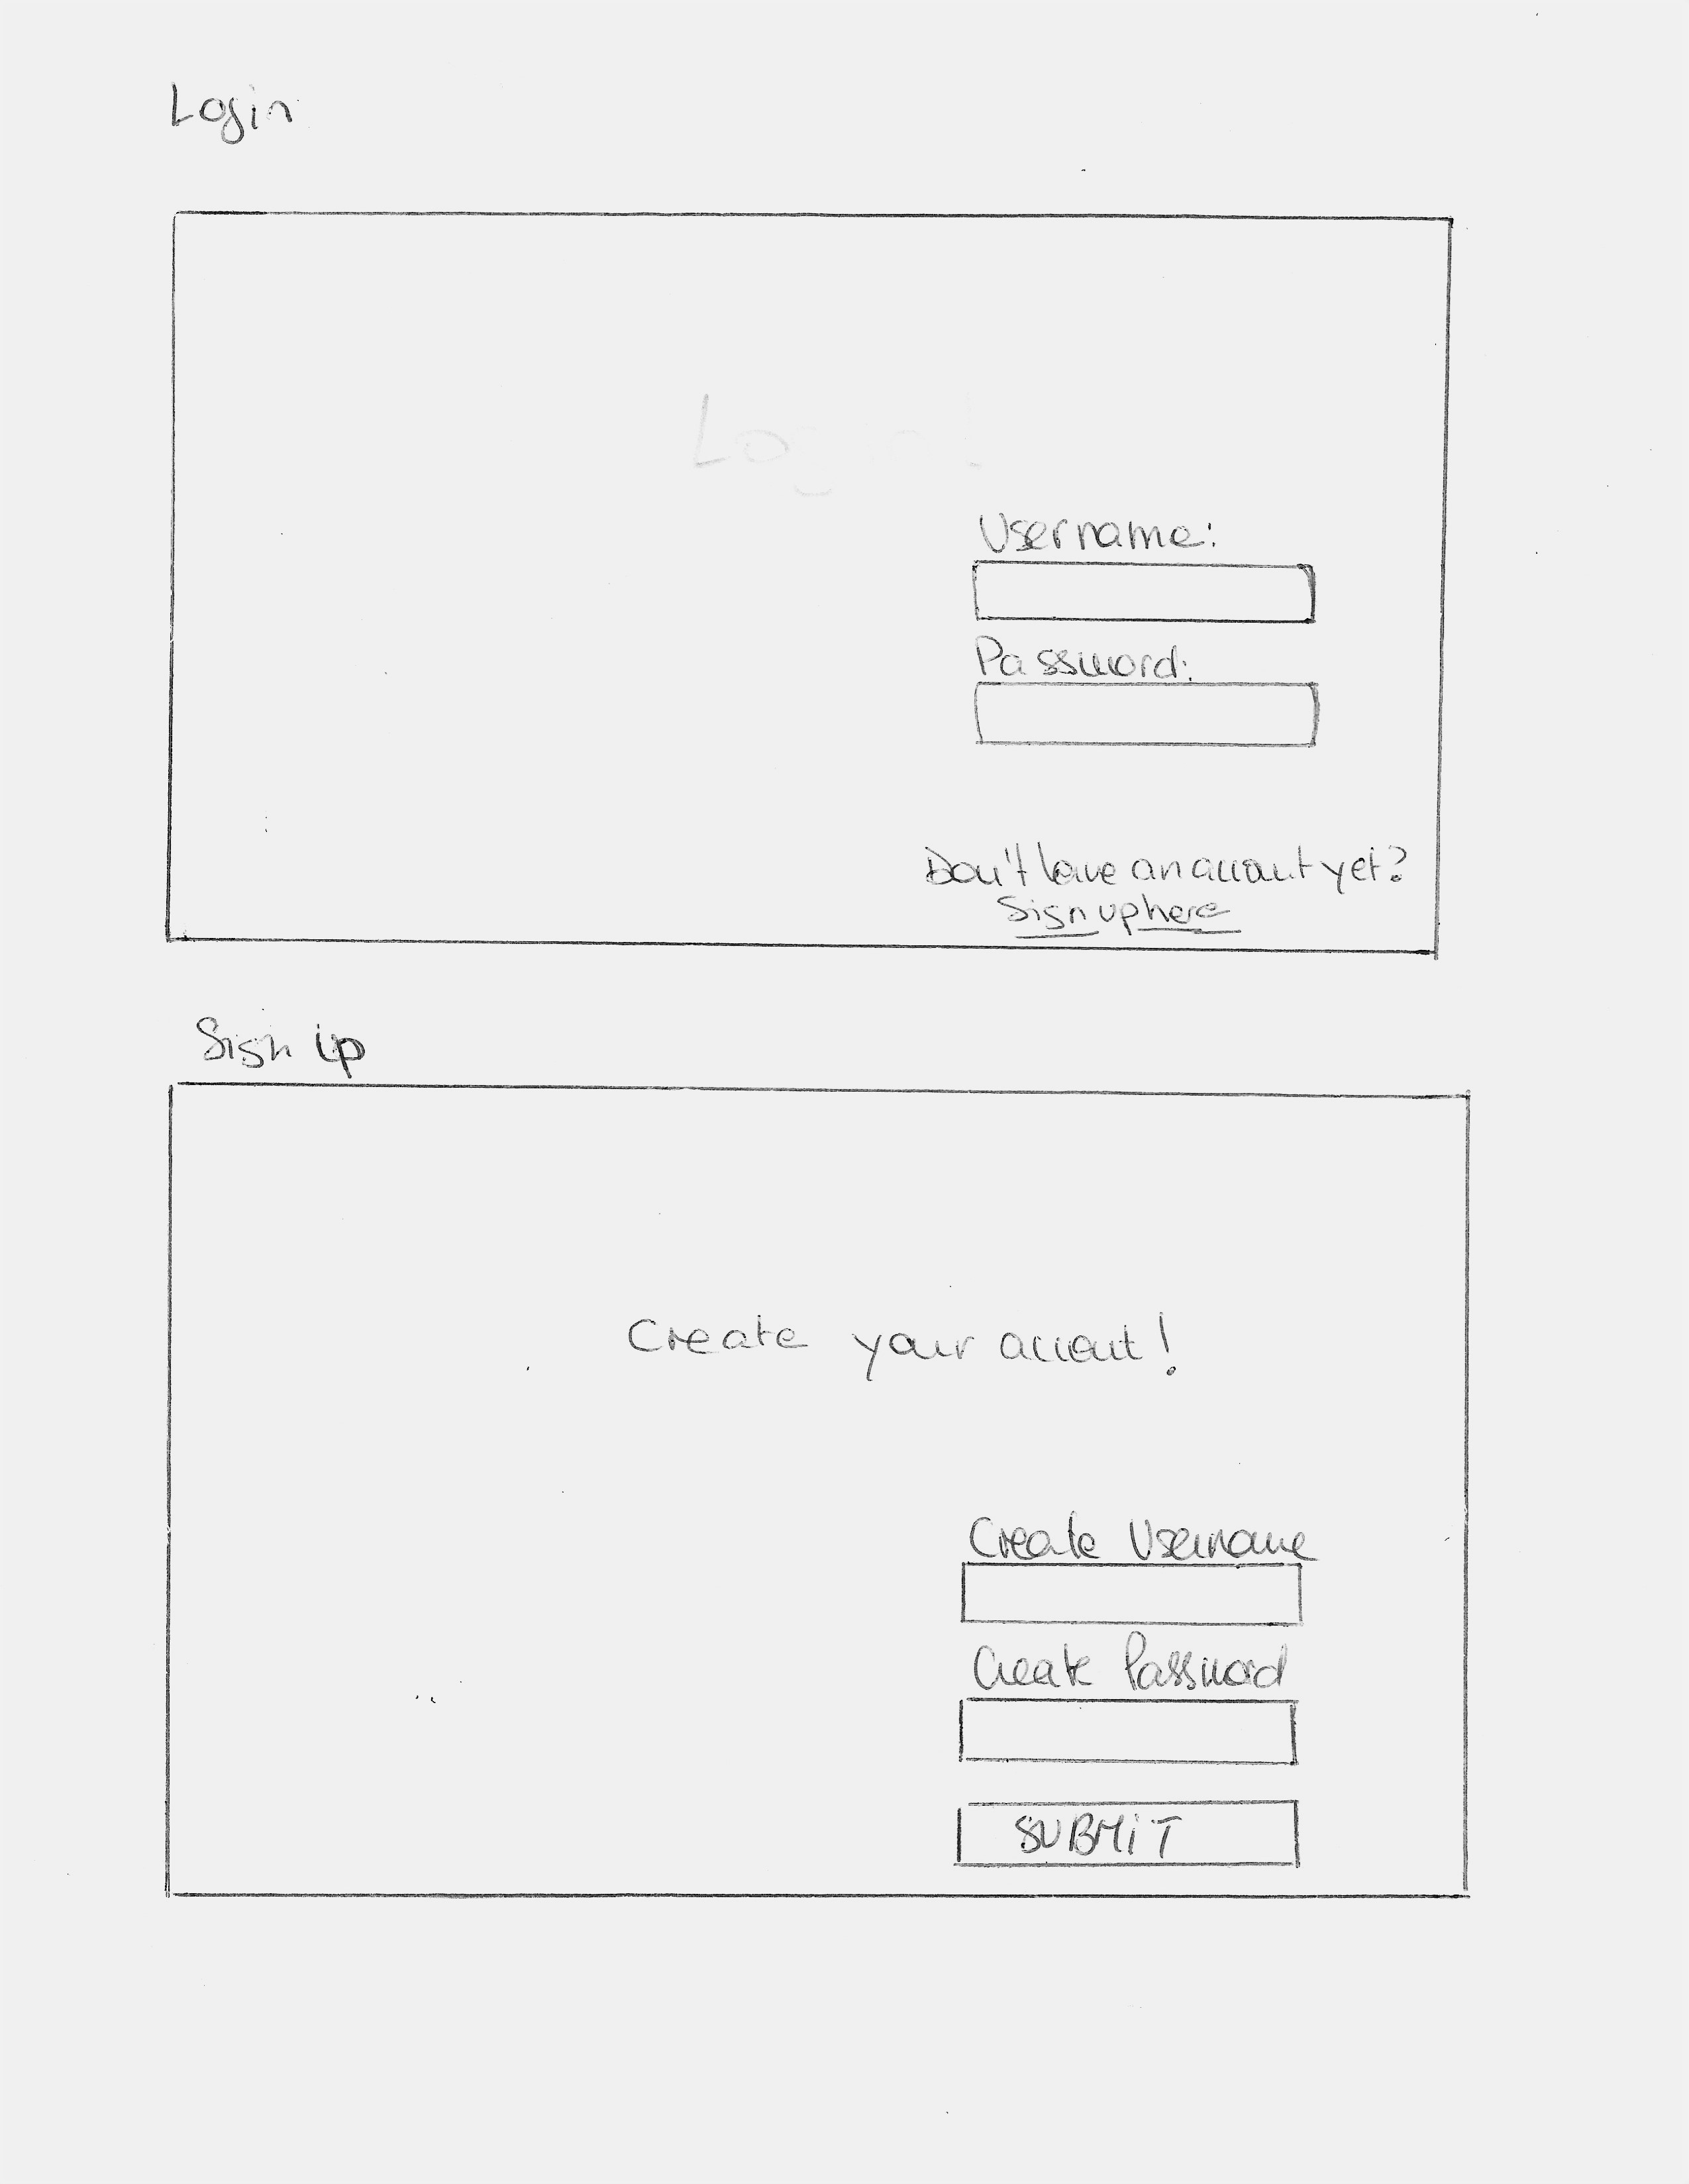 Login
Login!
Username:
Password:
Don't have an account yet?
Sign up here
Sign up
Create your account!
Create Username
Create Password
SUBMiT